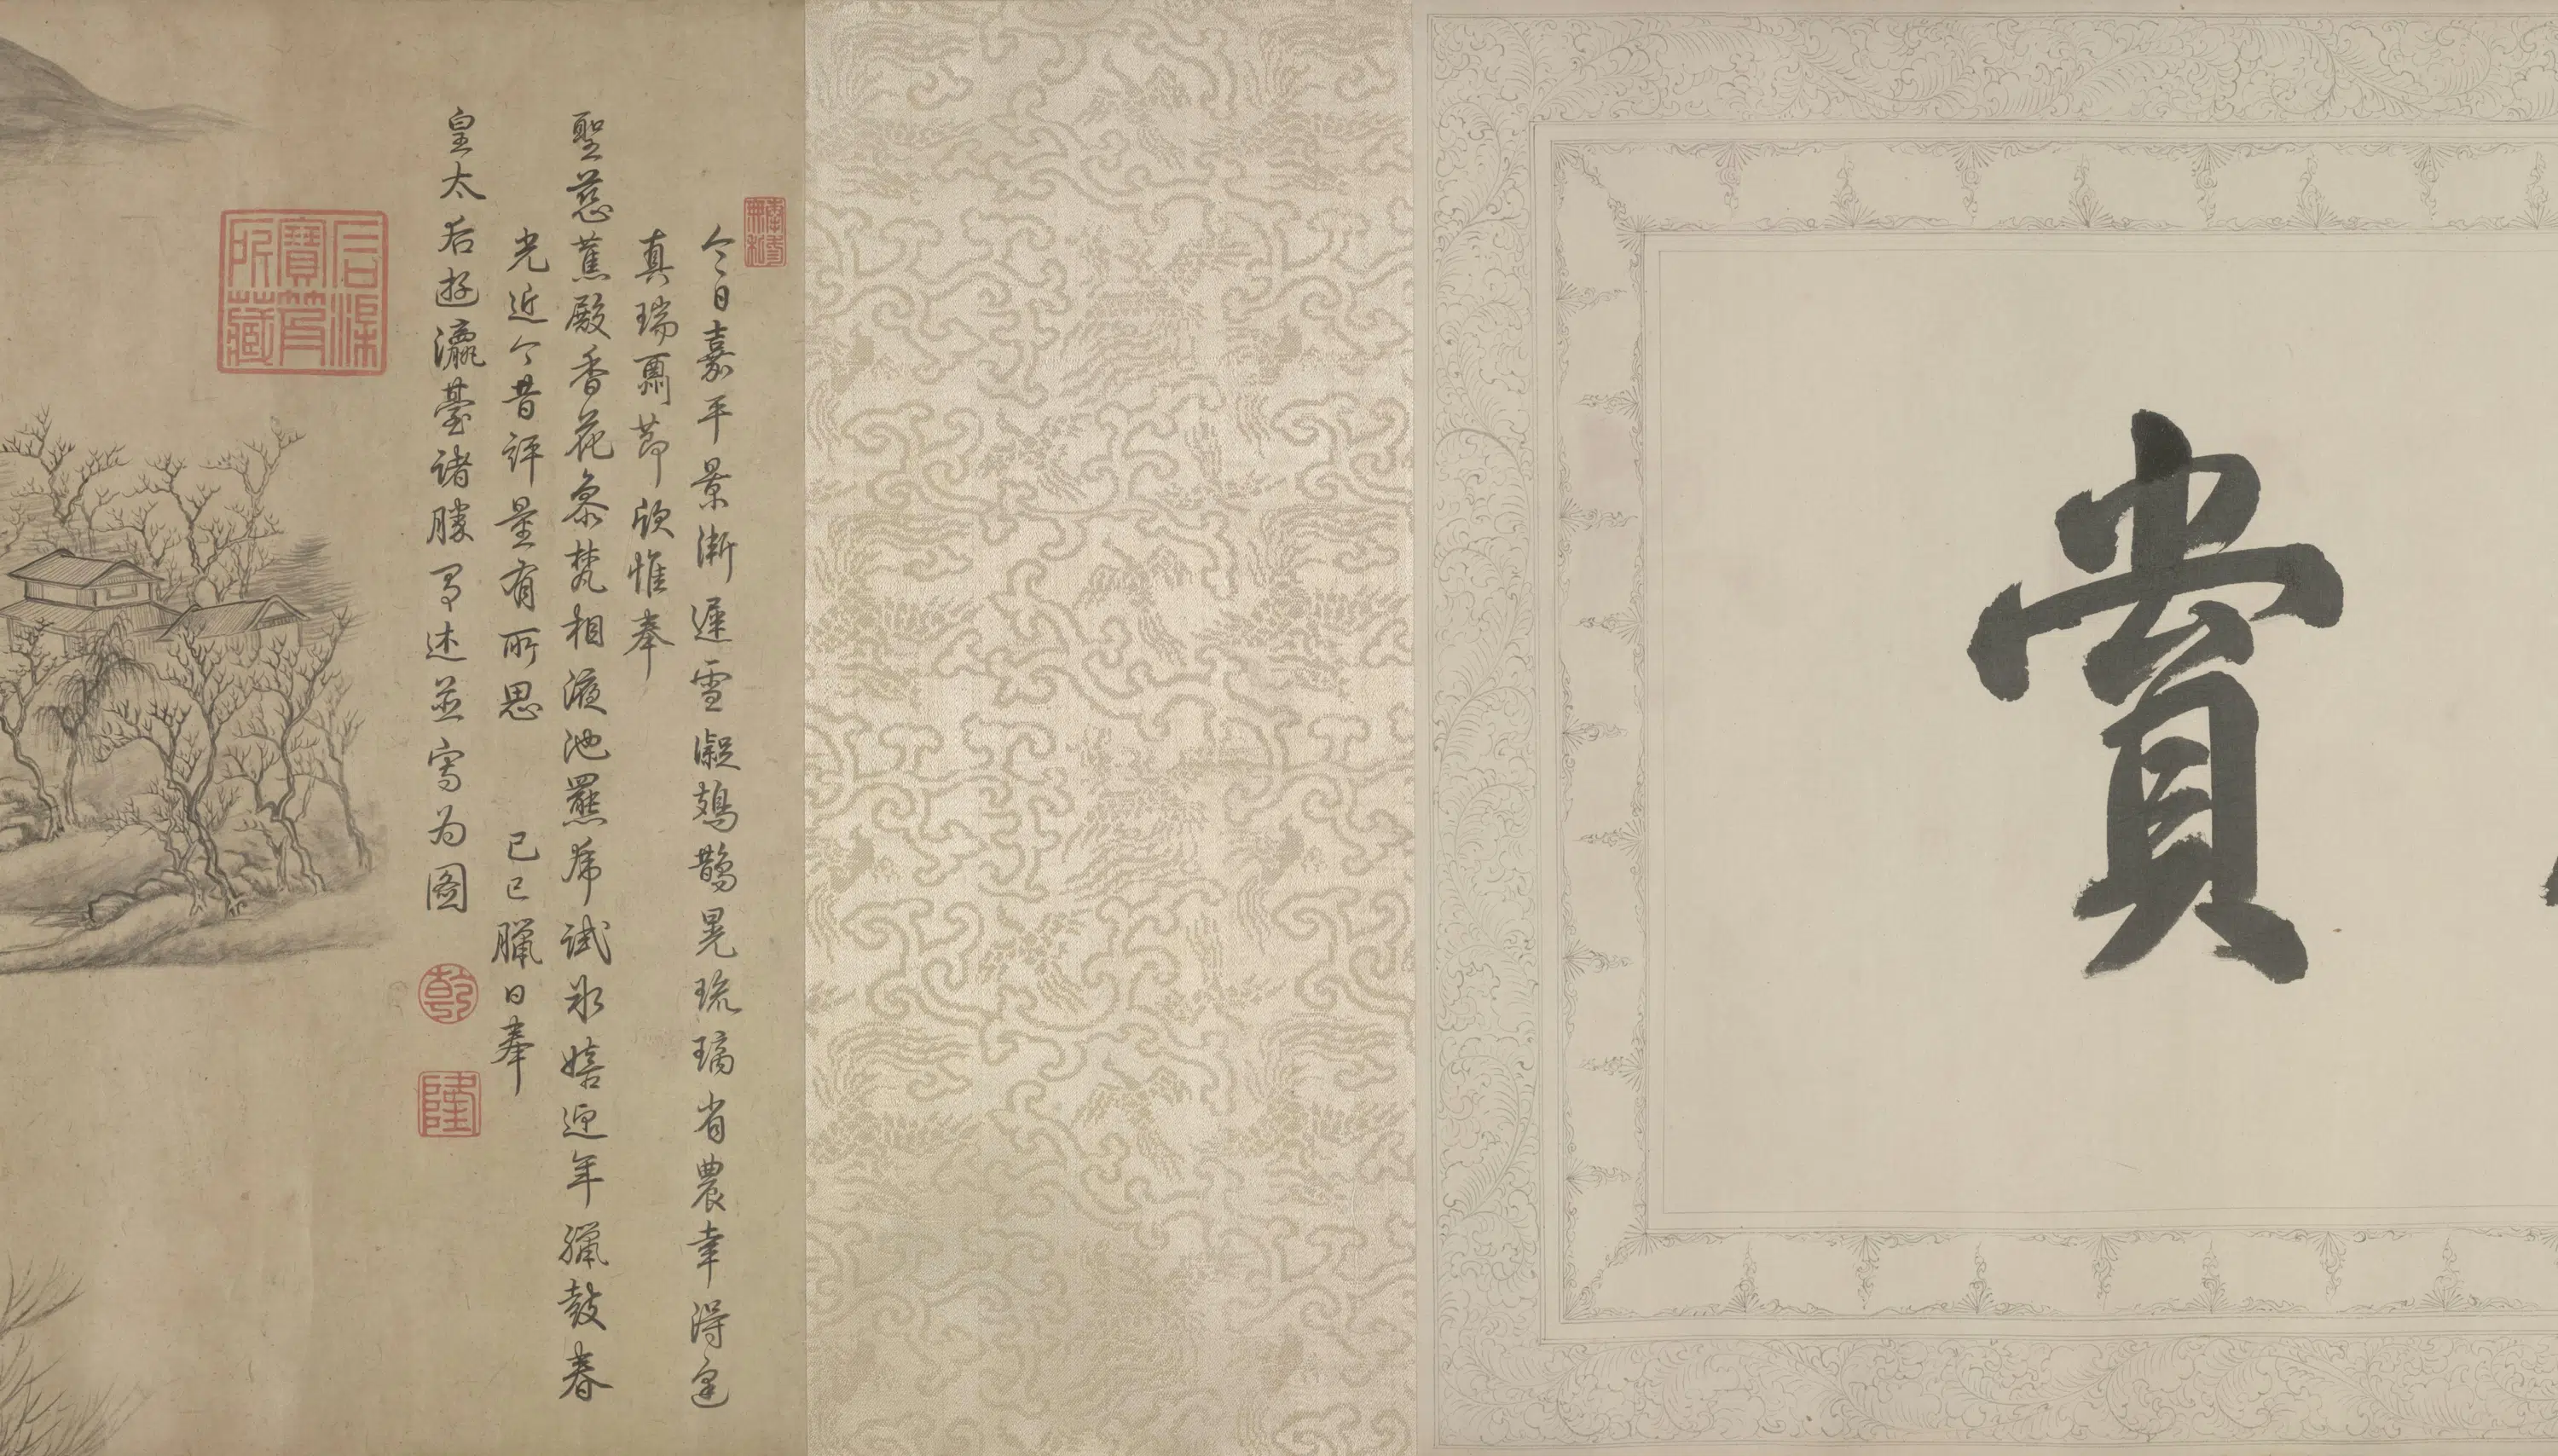 賞
奉三無私
今日嘉平景漸遲雪凝鳷鵲晃琉璃省農幸得逢
真瑞肅節欣惟奉
聖慈蕉殿香花參梵相液池羆虎試冰嬉迎年臘鼓春
光近今昔評量有所思 己巳臘日奉
皇太后遊瀛臺諸勝述並寫為圖
乾
隆
石渠寶笈所藏